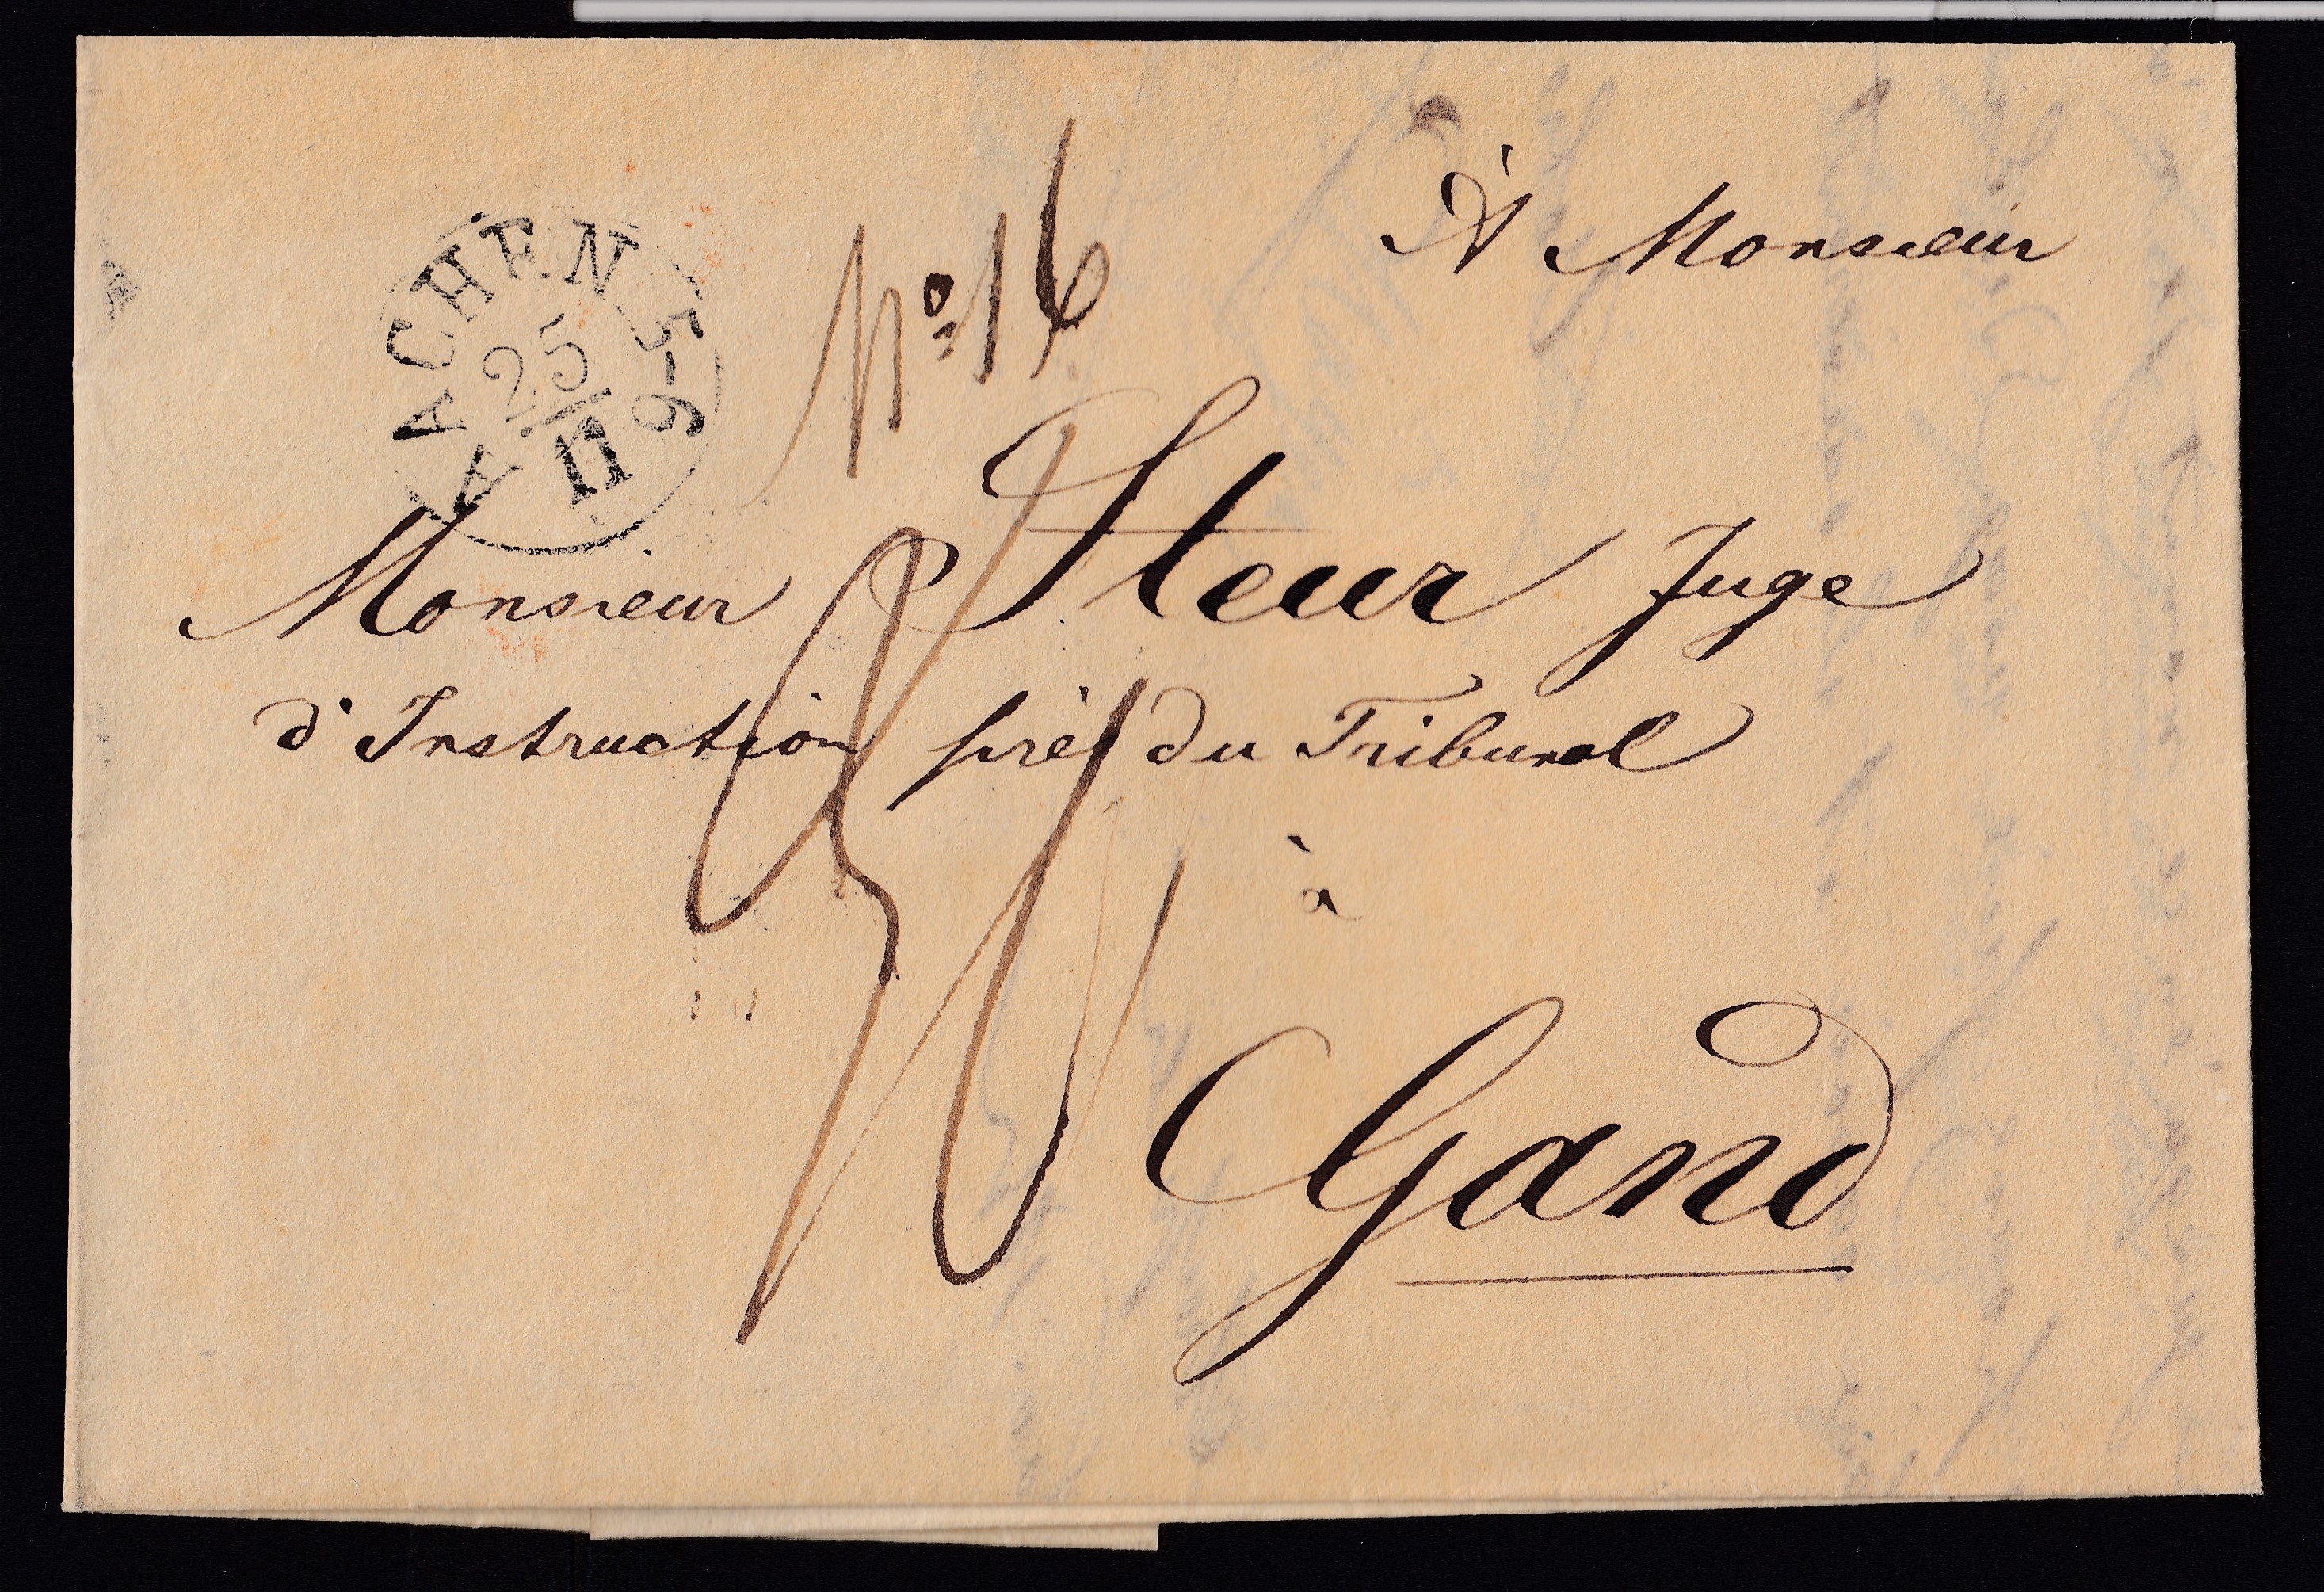 À Monsieur
Nº 16
AACHEN 5-6
25
11
Monsieur Steur Juge
d'Instruction près du Tribunal
à
Gand